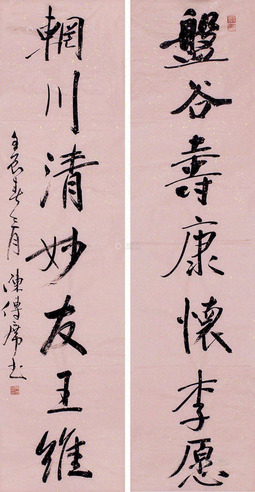 盤谷壽康懷李愿
輞川清妙友王維
壬辰春三月陳傳席书